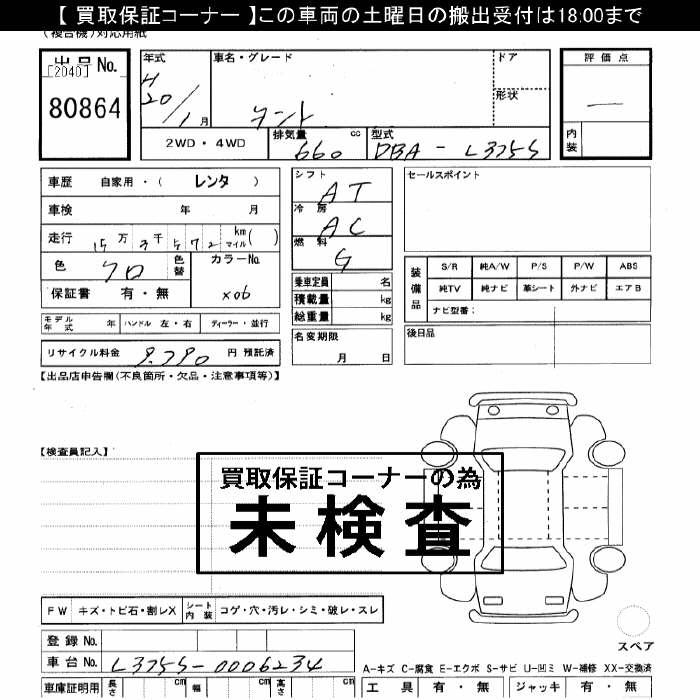 【 買取保証コーナー 】この車両の土曜日の搬出受付は18:00まで
(複合機)対応用紙
出品 No.
[2040]
80864
年式
H
20/1月
車名・グレード
タント
ドア
形状
評価点
—
内装
2WD・4WD
排気量 660 cc
型式 DBA-L375S
車歴 自家用・( レンタ )
車検 年 月
走行 15万 3千 5 7 2 km マイル ( )
色 クロ 色替
カラーNo. X06
保証書 有・無
モデル年式 年 ハンドル 左・右 ディーラー・並行
リサイクル料金 9.790 円 預託済
シフト AT
冷房 AC
燃料 G
乗車定員 名
積載量 kg
総重量 kg
名変期限
月 日
セールスポイント
装備品
S/R 純A/W P/S P/W ABS
純TV 純ナビ 革シート 外ナビ エアB
ナビ型番:
後日品
【出品店申告欄(不良箇所・欠品・注意事項等)】
【検査員記入】
買取保証コーナーの為
未検査
FW キズ・トビ石・割レX シート内装 コゲ・穴・汚レ・シミ・破レ・スレ
スペア
登録 No.
車台 No. L375S-0006234
A-キズ C-腐食 E-エクボ S-サビ U-凹ミ W-補修 XX-交換済
車庫証明用 長さ cm 幅 cm 高さ cm
工具 有・無 ジャッキ 有・無